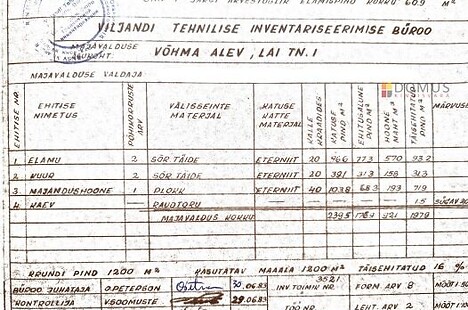 ELAMISPIND KOKKU 60.9 M²
VILJANDI TEHNILISE INVENTARISEERIMISE BÜROO
MAJAVALDUSE AADRESS
VÕHMA ALEV, LAI TN. 1
MAJAVALDUSE VALDAJA
DOMUS
KINNISVARA
EHITISE NR. EHITISE NIMETUS PÕHIKORRUSTE ARV VÄLISSEINTE MATERJAL KATUSE KATTE MATERJAL KALLE KRAADIDES KATUSE PIND M² EHITUSALUNE PIND M² HOONE MAHT M³ TÄISEHITATUD PIND M² MÄRKUSED
1 ELAMU 2 SÕR. TÄIDE ETERNIIT 20 96.6 77.3 570 93.2
2 KUUR 2 SÕR. TÄIDE ETERNIIT 20 39.1 31.3 158 31.3
3 MAJANDUSHOONE 1 PLOKK ETERNIIT 40 103.8 68.3 193 71.9
4 KAEV RAUDTORU 1.5
MAJAVALDUS KOKKU 239.5 176.9 921 197.9
KRUNDI PIND 1200 M² KASUTATAV MAAALA 1200 M² TÄISEHITATUD 16 %
BÜROO JUHATAJA O. PETERSON 30.06.83 INV. TOIMIV NR. 3521 FORM. ARV 8
KONTROLLIJA V. SOOMUSTE 29.06.83 TÖÖ NR. LEHT. ARV 2